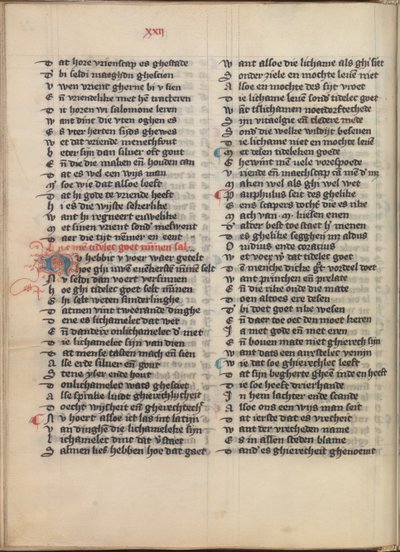 xxij
Dat hore vrienscap es ghestade
Di seldi maeghdn ghescien
Uwen vrient gherne bi v sien
En vriendelike met hē tracteren
Dit horen wi salomone leren
Want dinc die vten oghen es
Es vter herten sijds ghewes
Wet dat vriende menechfout
Beter sijn dan siluer oft gout
En die die maken en houden can
Dat es wel een wijs man
So wie dat alloe leeft
Dat hi gote te vriende heeft
Hi es die wijste sekerlike
Want hi regneert ewelike
Met sinen vrient sond meswent
Daer die tijt nemt en eent
hoe mē tidelec goet minen sal
Nu hebbic v voer waer getelt
Hoe ghi uwē euenersten minē selt
Nu seldi dan voert versinnen
Hoe ghi tidelec goet selt minnen
Ghi selt weten sunderlinghe
Datmen vint tweerande dinghe
Dene es lichamelec dat wet
En dander onlichamelec dit met
Die lichamelec sijn van dien
Dat mense tasten mach en sien
Alse erde siluer en gout
Stene yser ende hout
Donlichamelec wats ghescie
Alse spralie luide ghierechticheit
Oecht wijsheit en ghierechtech
Nu hoert alloe ict las int latijn
Van dinghē die lichamelec sijn
Lichamelec dinc dat v staet
Salmen lies hebben hoe dat gaet
Want alloe die lichame als ghi siet
Sonder ziele en mochte leuē niet
Alloe en mochte des sijt vroet
Die lichame leuē sond tidelec goet
Want tslichamen noederftechede
Sijn vitaelgie en cledere mede
Sond die welke wildijt beseuen
Die lichame niet en mochte leuē
Met desen tidelekē goede
Ghewint mē vele voerspoede
Vriende en maechscap en mē mach
Maken wel als ghi wel wet
Pamphilus seit des ghelike
Een scapers dochter die es rike
Mach van .M. kiesen enen
Dalter best toe staet hi menen
Des ghelike segghen in aldus
Ouidius ende oratius
Wet voer w dat tidelec goet
En menche dicke gt vordeel doet
Want princhen en prelate
En die rike onder die mate
Doen altoes ere desen
Di doet goet rike wesen
En daer toe oec den mont heren
Ja met gode en met eren
En bouen mate niet ghierech sijn
Want dats een auerstelec venijn
Wie dat soe ghierechlec leeft
Dat sijn begherte ghenē inden heeft
Die soe heeft drierhande
In hem lachter ende scande
Alloe ons een wijs man seit
Dat ierste dat es vrecheit
Want ter vrecheden name
Es in allen steden blame
Dand es ghierecheit ghenoemt